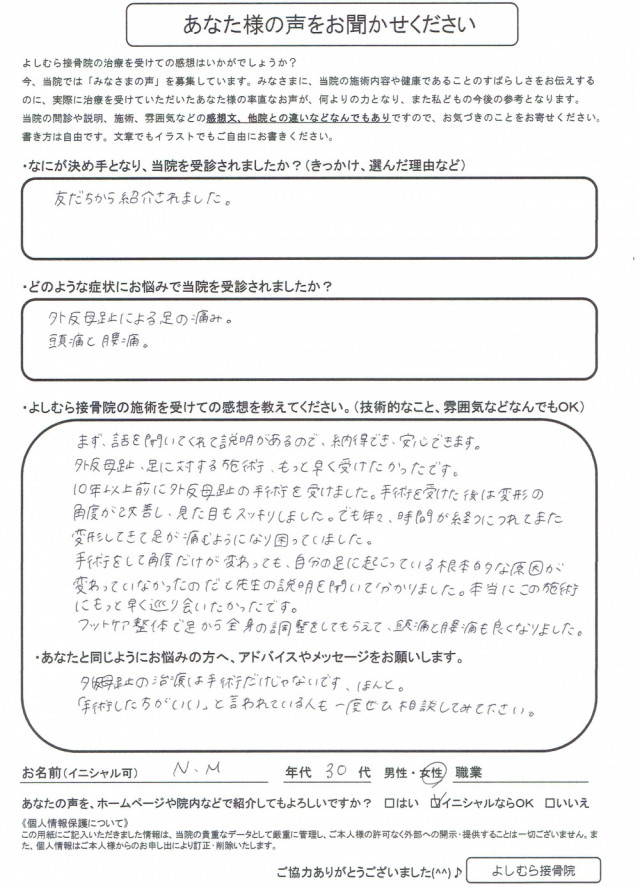 あなた様の声をお聞かせください
よしむら接骨院の治療を受けての感想はいかがでしょうか？
今、当院では「みなさまの声」を募集しています。みなさまに、当院の施術内容や健康であることのすばらしさをお伝えする
のに、実際に治療を受けていただいたあなた様の率直なお声が、何よりの力となり、また私どもの今後の参考となります。
当院の問診や説明、施術、雰囲気などの感想文、他院との違いなどなんでもありですので、お気づきのことをお寄せください。
書き方は自由です。文章でもイラストでもご自由にお書きください。
・なにが決め手となり、当院を受診されましたか？（きっかけ、選んだ理由など）
友だちから紹介されました。
・どのような症状にお悩みで当院を受診されましたか？
外反母趾による足の痛み。
頭痛と腰痛。
・よしむら接骨院の施術を受けての感想を教えてください。（技術的なこと、雰囲気などなんでもOK）
まず、話を聞いてくれて説明があるので、納得でき、安心できます。
外反母趾、足に対する施術、もっと早く受けたかったです。
10年以上前に外反母趾の手術を受けました。手術を受けた後は変形の
角度が改善し、見た目もスッキリしました。でも年々、時間が経つにつれてまた
変形してきて足が痛むようになり困っていました。
手術をして角度だけが変わっても、自分の足に起こっている根本的な原因が
変わっていなかったのだと先生の説明を聞いて分かりました。本当にこの施術
にもっと早く巡り会いたかったです。
フットケア整体で足から全身の調整をしてもらえて、頭痛と腰痛も良くなりました。
・あなたと同じようにお悩みの方へ、アドバイスやメッセージをお願いします。
外反母趾の治療は手術だけじゃないです、ほんと。
「手術した方がいい」と言われている人も一度ぜひ相談してみて下さい。
お名前（イニシャル可） N.M 年代 30 代 男性・女性 職業
あなたの声を、ホームページや院内などで紹介してもよろしいですか？ □はい ☑イニシャルならOK □いいえ
《個人情報保護について》
この用紙にご記入いただきました情報は、当院の貴重なデータとして厳重に管理し、ご本人様の許可なく外部への開示・提供することは一切ございません。ま
た、個人情報はご本人様からのお申し出により訂正・削除いたします。
ご協力ありがとうございました(^^)♪ よしむら接骨院